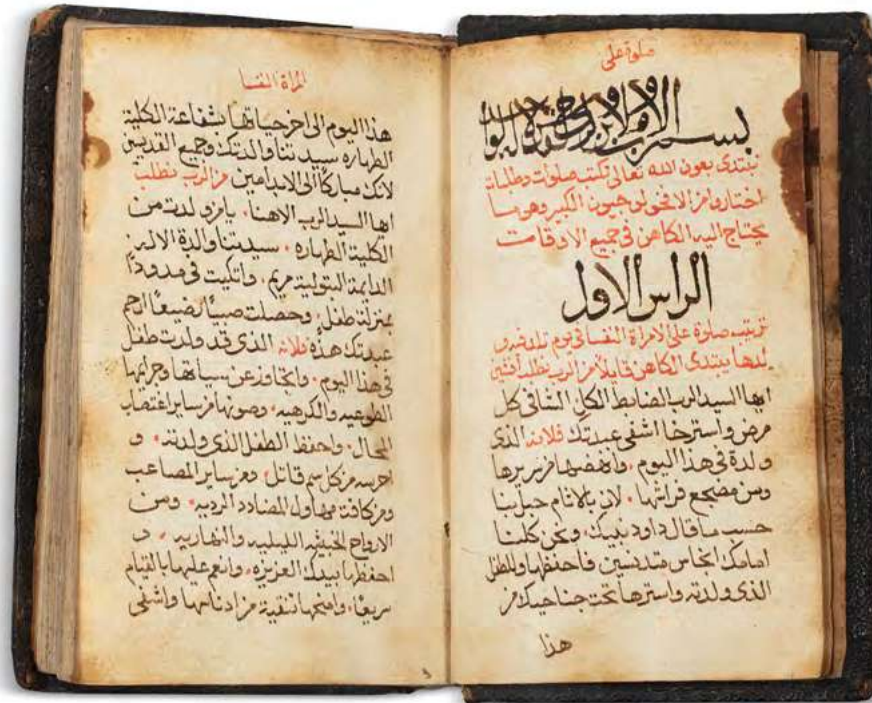 صلوة على
بسم الاب والابن والروح القدس الاله الواحد
نبتدى بعون الله تعالى نكتب صلوات وطلبات
اختاروا من الافخولوجيون الكبير وهو ما
يحتاج اليه الكاهن فى جميع الاوقات
الراس الاول
ترتيب صلوة على الامراة النفسا فى يوم تلد فيه و
لدها يبتدى الكاهن قايلاً من الرب نطلب افشين
ايها السيد الرب الضابط الكل الشافى كل
مرض واسترخا اشفى عبدتك فلانه الذى
ولدة فى هذا اليوم وانهضها من سريرها
ومن مضجع فراشها لان بالاثام حبل بنا
حسب ما قال داود نبيك ونحن كلنا
امامك انجاس متدنسين فاحفظها والطفل
الذى ولدته واسترها تحت جناحيك من
هذا
المراة النفسا
هذا اليوم الى اخر حياتها بشفاعة الكلية
الطهاره سيدتنا والدتك وجميع القديسين
لانك مباركاً الى الابد امين من الرب نطلب
ايها السيد الرب الاهنا يا من ولدت من
الكلية الطهاره سيدتنا والدة الاله
الدايمة البتولية مريم واتكيت فى مدود
بمنزلة طفل وحصلت صبياً رضيعاً ارحم
عبدتك هذه فلانه الذى قد ولدت طفل
فى هذا اليوم وتجاوز عن سياتها وجرايمها
الطوعيه والكرهيه وصونها من ساير اغتصاب
المحال واحفظ الطفل الذى ولدته و
احرسه من كل سم قاتل ومن ساير المصاعب
ومن كافة مهاول المضادد الرديه ومن
الارواح الخبيثه الليليه والنهاريه و
احفظها بيدك العزيزه وانعم عليها بالقيام
سريعاً وامنحها تنقية من ادناسها واشفى